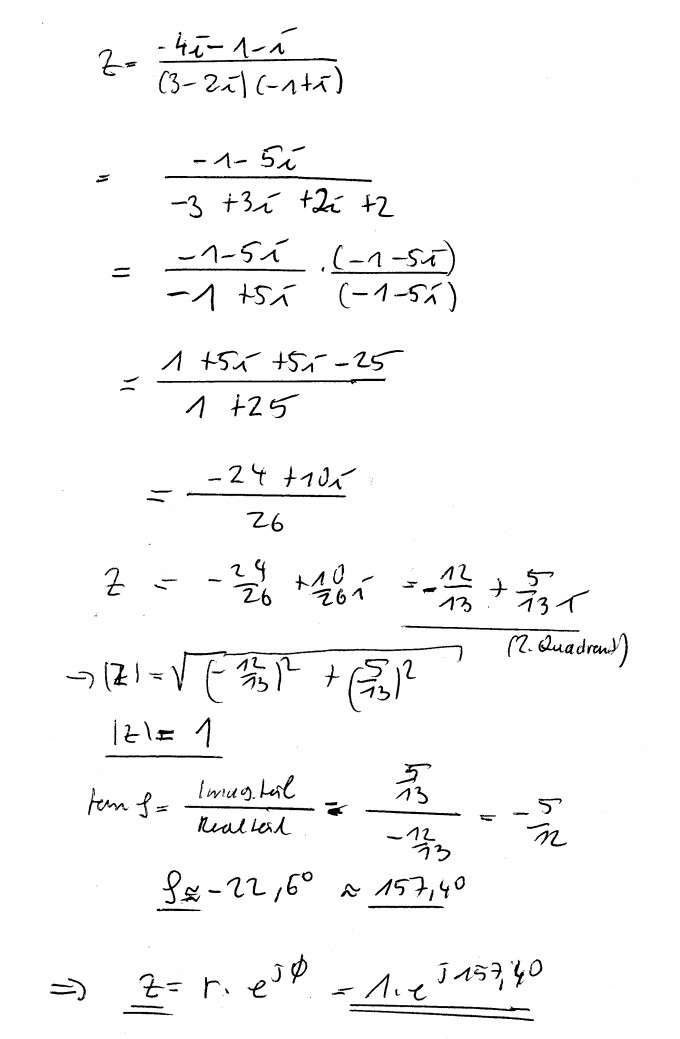 Z = (-4i - 1 - i) / ((3 - 2i)(-1 + i))
= (-1 - 5i) / (-3 + 3i + 2i + 2)
= (-1 - 5i) / (-1 + 5i) · (-1 - 5i) / (-1 - 5i)
= (1 + 5i + 5i - 25) / (1 + 25)
= (-24 + 10i) / 26
Z = -24/26 + 10/26 i = -12/13 + 5/13 i
(2. Quadrant)
→ |Z| = √((-12/13)² + (5/13)²)
|Z| = 1
tan φ = Imag.teil / Realteil = (5/13) / (-12/13) = -5/12
φ ≈ -22,6° ≈ 157,4°
⇒ Z = r · e^(jϕ) = 1 · e^(j 157,4°)